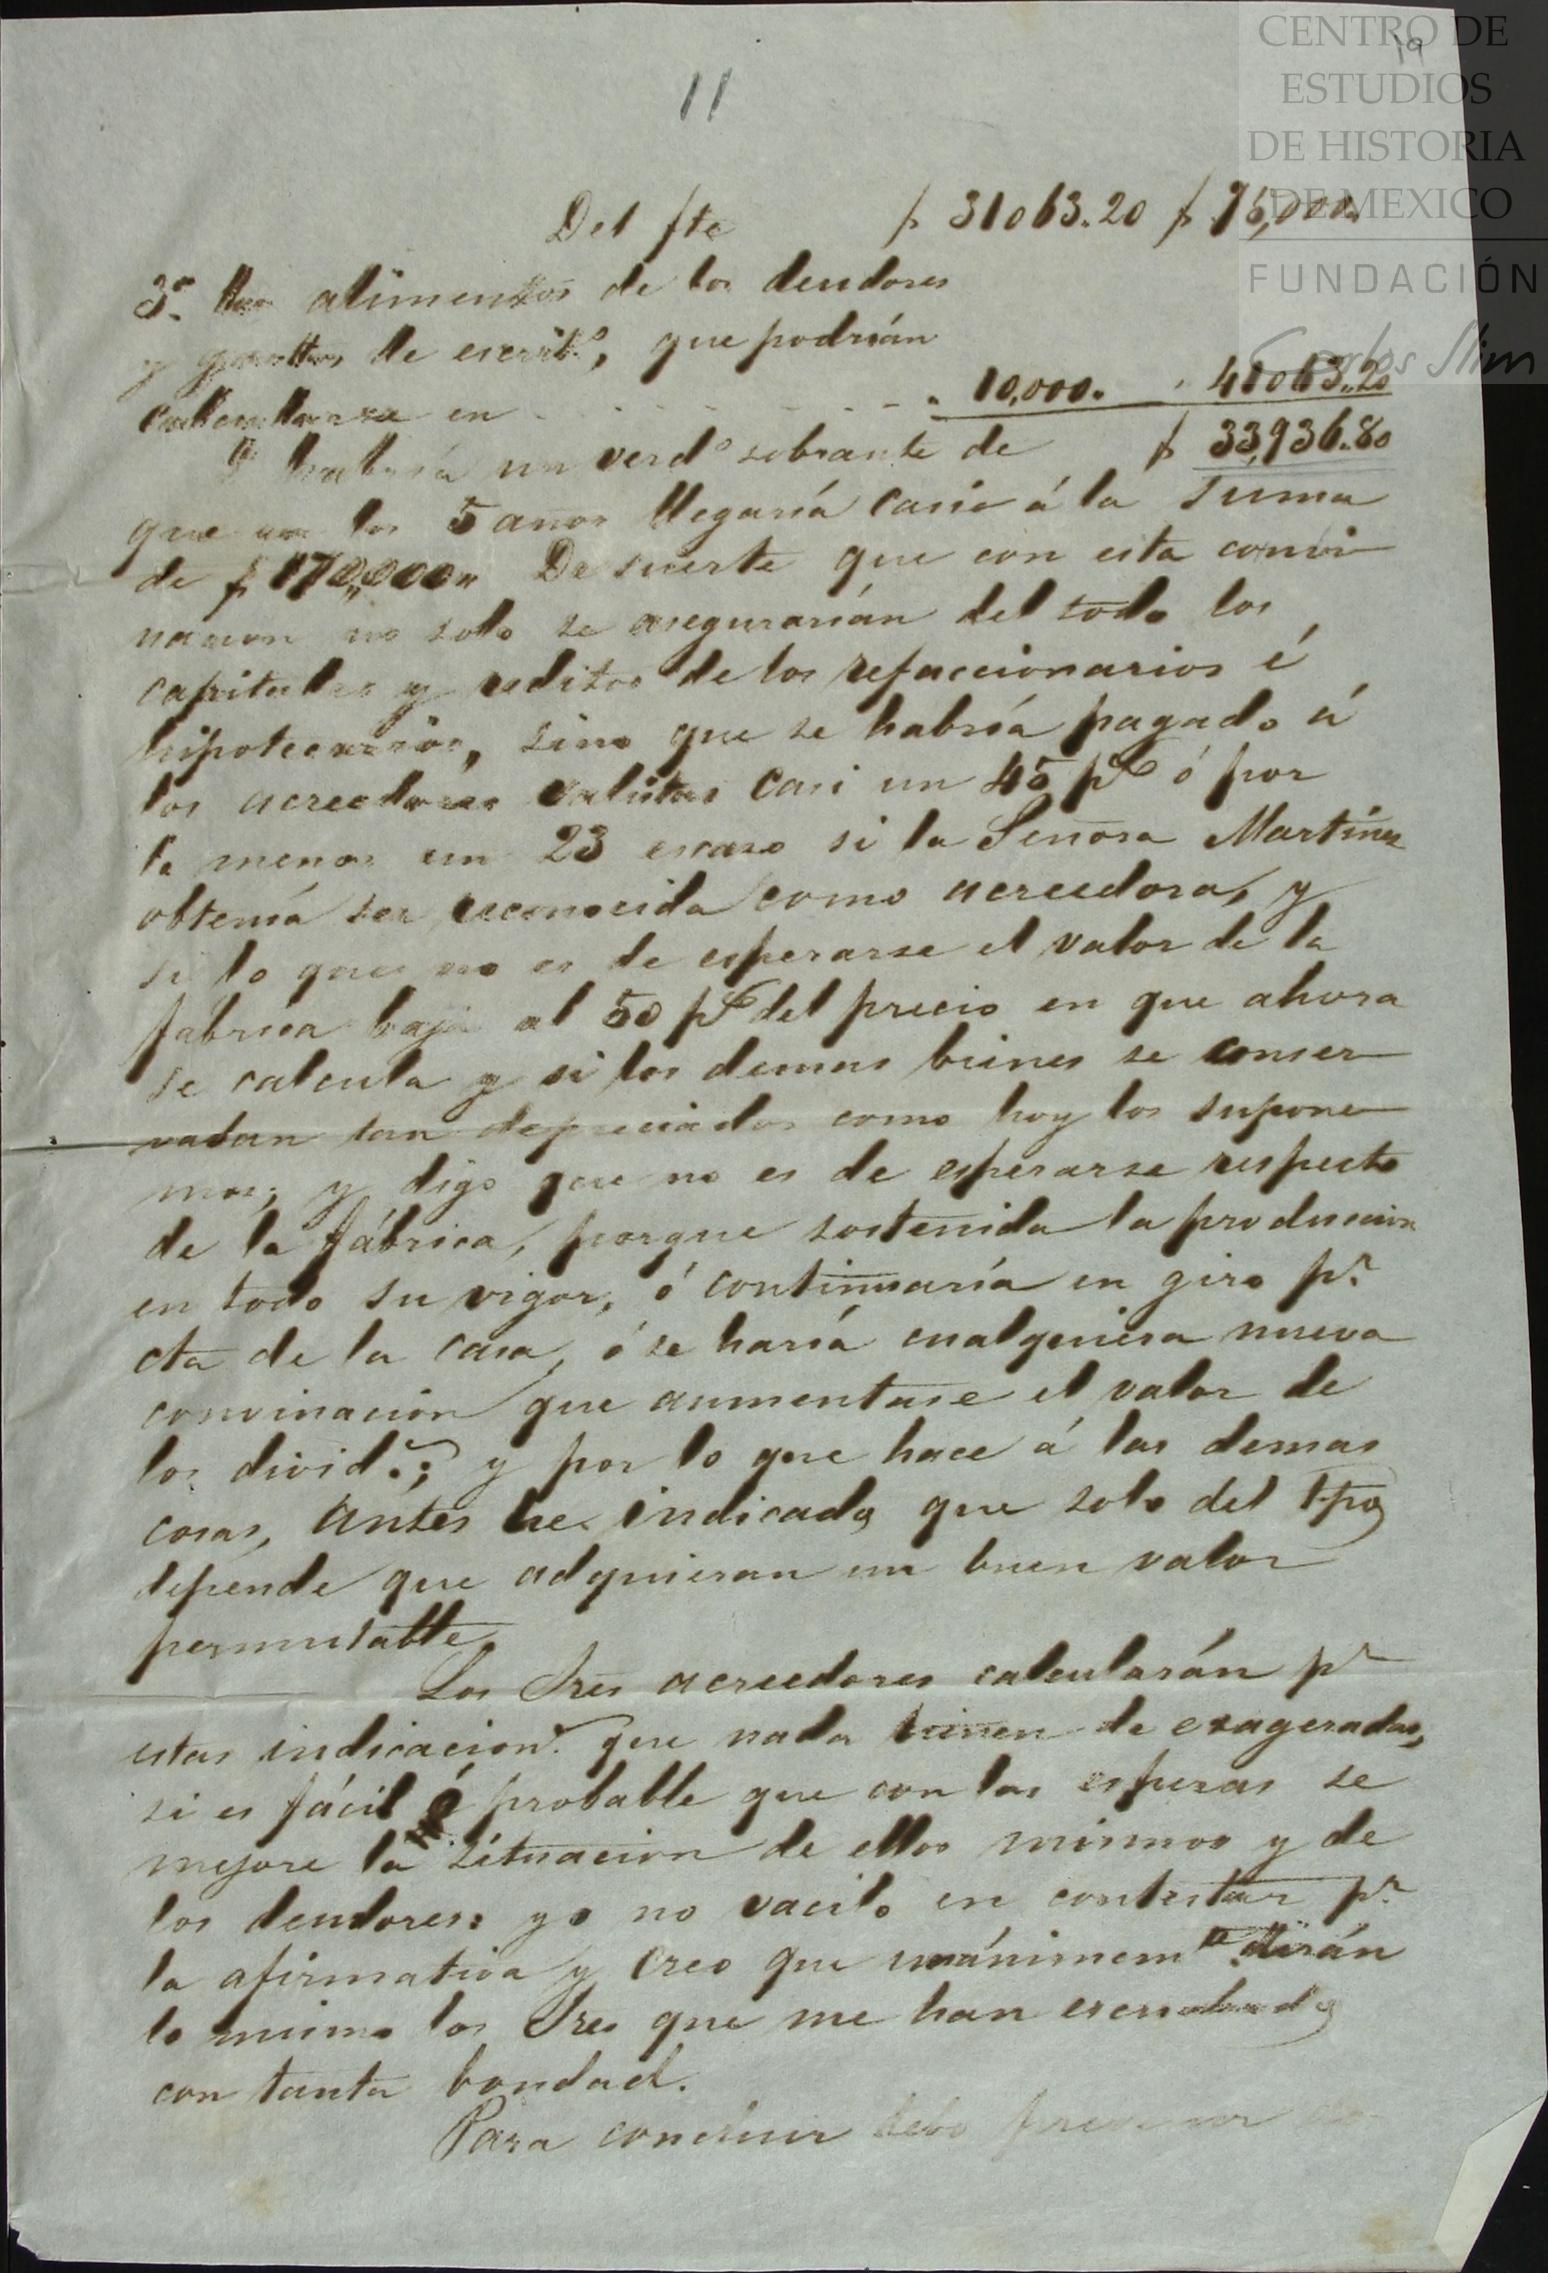 19
CENTRO DE
ESTUDIOS
DE HISTORIA
DE MEXICO
FUNDACIÓN
Carlos Slim
11
Del fte $ 31063.20 $ 75,000.
3º los alimentos de los deudores
y gastos de escritº, que podrían
calcularse en . . . . . . 10,000. " 41063.20
habría un verdº sobrante de $ 33,936.80
que en los 5 años llegaría casi á la suma
de $ 170,000" De suerte que con esta convi
nacion no solo se asegurarían del todo los
capitales y reditos de los refaccionarios é
hipotecarios, sino que se habría pagado á
los acreedores valistas casi un 45 p% ó por
lo menos un 23 escaso si la Señora Martinez
obtenía ser reconocida como acreedora, y
si lo que no es de esperarse el valor de la
fabrica baja al 50 p% del precio en que ahora
se calcula y si los demas bienes se conser
vaban tan depreciados como hoy los supone
mos; y digo que no es de esperarse respecto
de la fábrica, porque sostenida la produccion
en todo su vigor, ó continuaría en giro pr
cta de la casa, ó se haría cualquiera nueva
convinacion que aumentase el valor de
los divid.s; y por lo que hace á las demas
cosas, antes he indicado que solo del tpo
depende que adquieran un buen valor
permutable.
Los Sres acreedores calcularán pr
estas indicacion.s que nada tienen de exageradas,
si es fácil ó probable que con las esperas se
mejore la situacion de ellos mismos y de
los deudores: yo no vacilo en contestar pr
la afirmativa y creo que unánimemte dirán
lo mismo los Sres que me han escuchado
con tanta bondad.
Para concluir debo